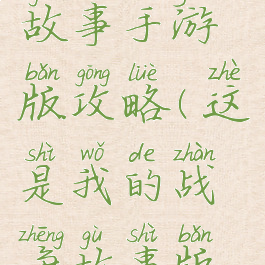 故事手游
bǎn gōng lüè zhè
版攻略(这
shì wǒ de zhàn
是我的战
zhēng gù shì bǎn
争故事版